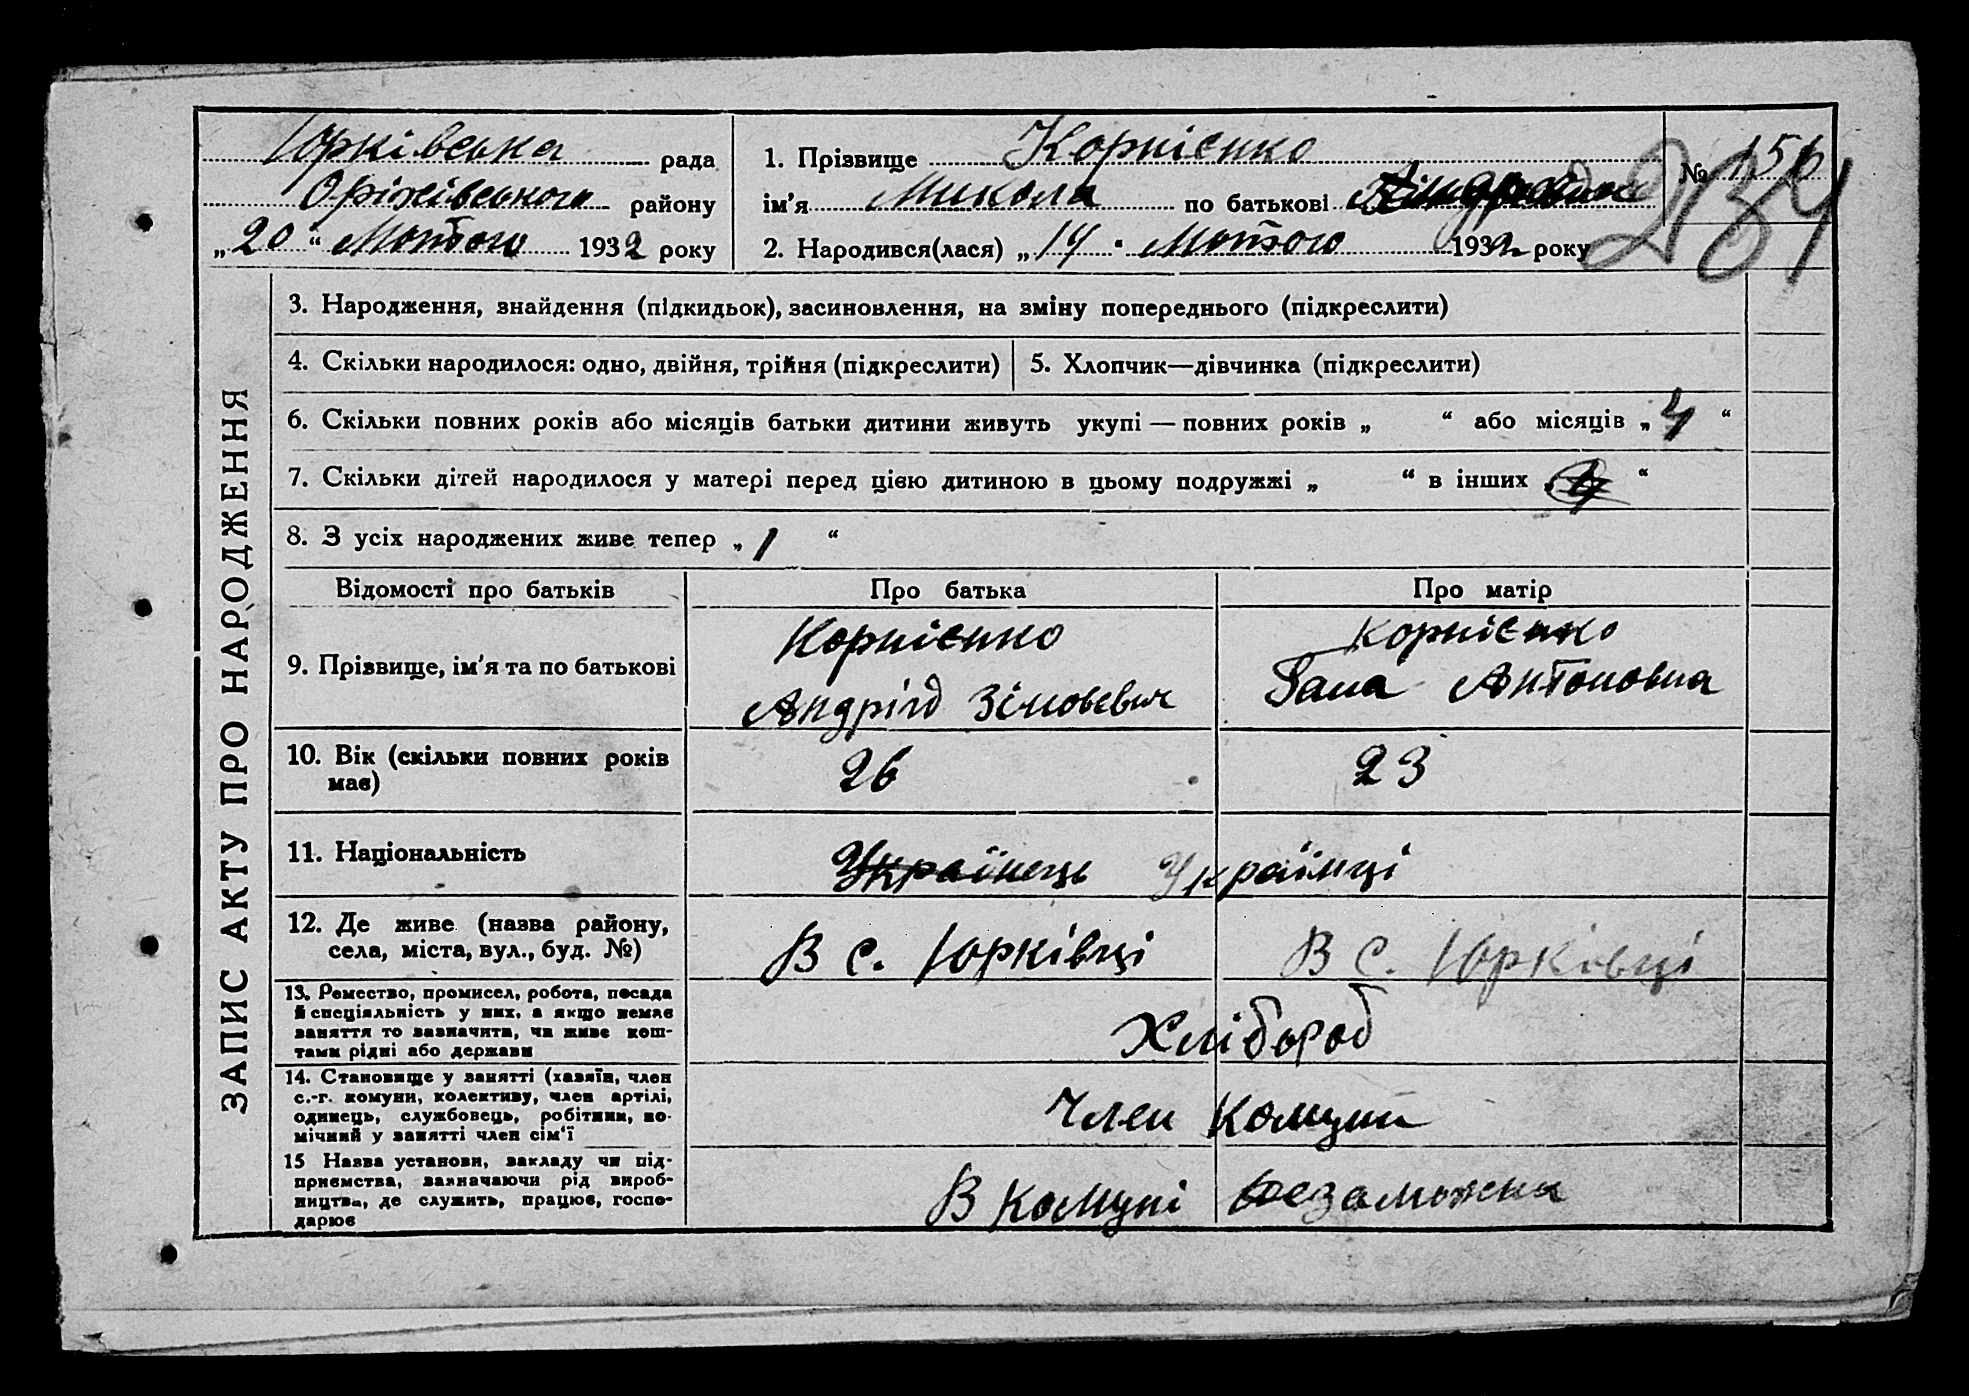 Юрківська рада
Оржівського району
„20“ Лютого 1932 року
1. Прізвище Корнієнко
ім'я Микола по батькові Андрійович
2. Народився(лася) „14“ Лютого 1932 року
№ 156
284
ЗАПИС АКТУ ПРО НАРОДЖЕННЯ
3. Народження, знайдення (підкидьок), засиновлення, на зміну попереднього (підкреслити)
4. Скільки народилося: одно, двійня, трійня (підкреслити) 5. Хлопчик—дівчинка (підкреслити)
6. Скільки повних років або місяців батьки дитини живуть укупі — повних років „ “ або місяців „4“
7. Скільки дітей народилося у матері перед цією дитиною в цьому подружжі „ “ в інших „ “
8. З усіх народжених живе тепер „1“
Відомості про батьків Про батька Про матір
9. Прізвище, ім'я та по батькові
Корнієнко
Андрій Зіновєвич
Корнієнко
Гана Антоновна
10. Вік (скільки повних років
має)
26 23
11. Національність
Українець Українці
12. Де живе (назва району,
села, міста, вул., буд. №)
В с. Юрківці В с. Юрківці
13. Ремество, промисел, робота, посада
й спеціяльність у них, а якщо немає
заняття то зазначити, чи живе кош-
тами рідні або держави
Хлібороб
14. Становище у занятті (хазяїн, член
с.-г. комуни, колективу, член артілі,
одинець, службовець, робітник, по-
мічний у занятті член сім'ї
Член Комуни
15 Назва установи, закладу чи під-
приємства, зазначаючи рід вироб-
ництва, де служить, працює, госпо-
дарює
В комуні Незаможник